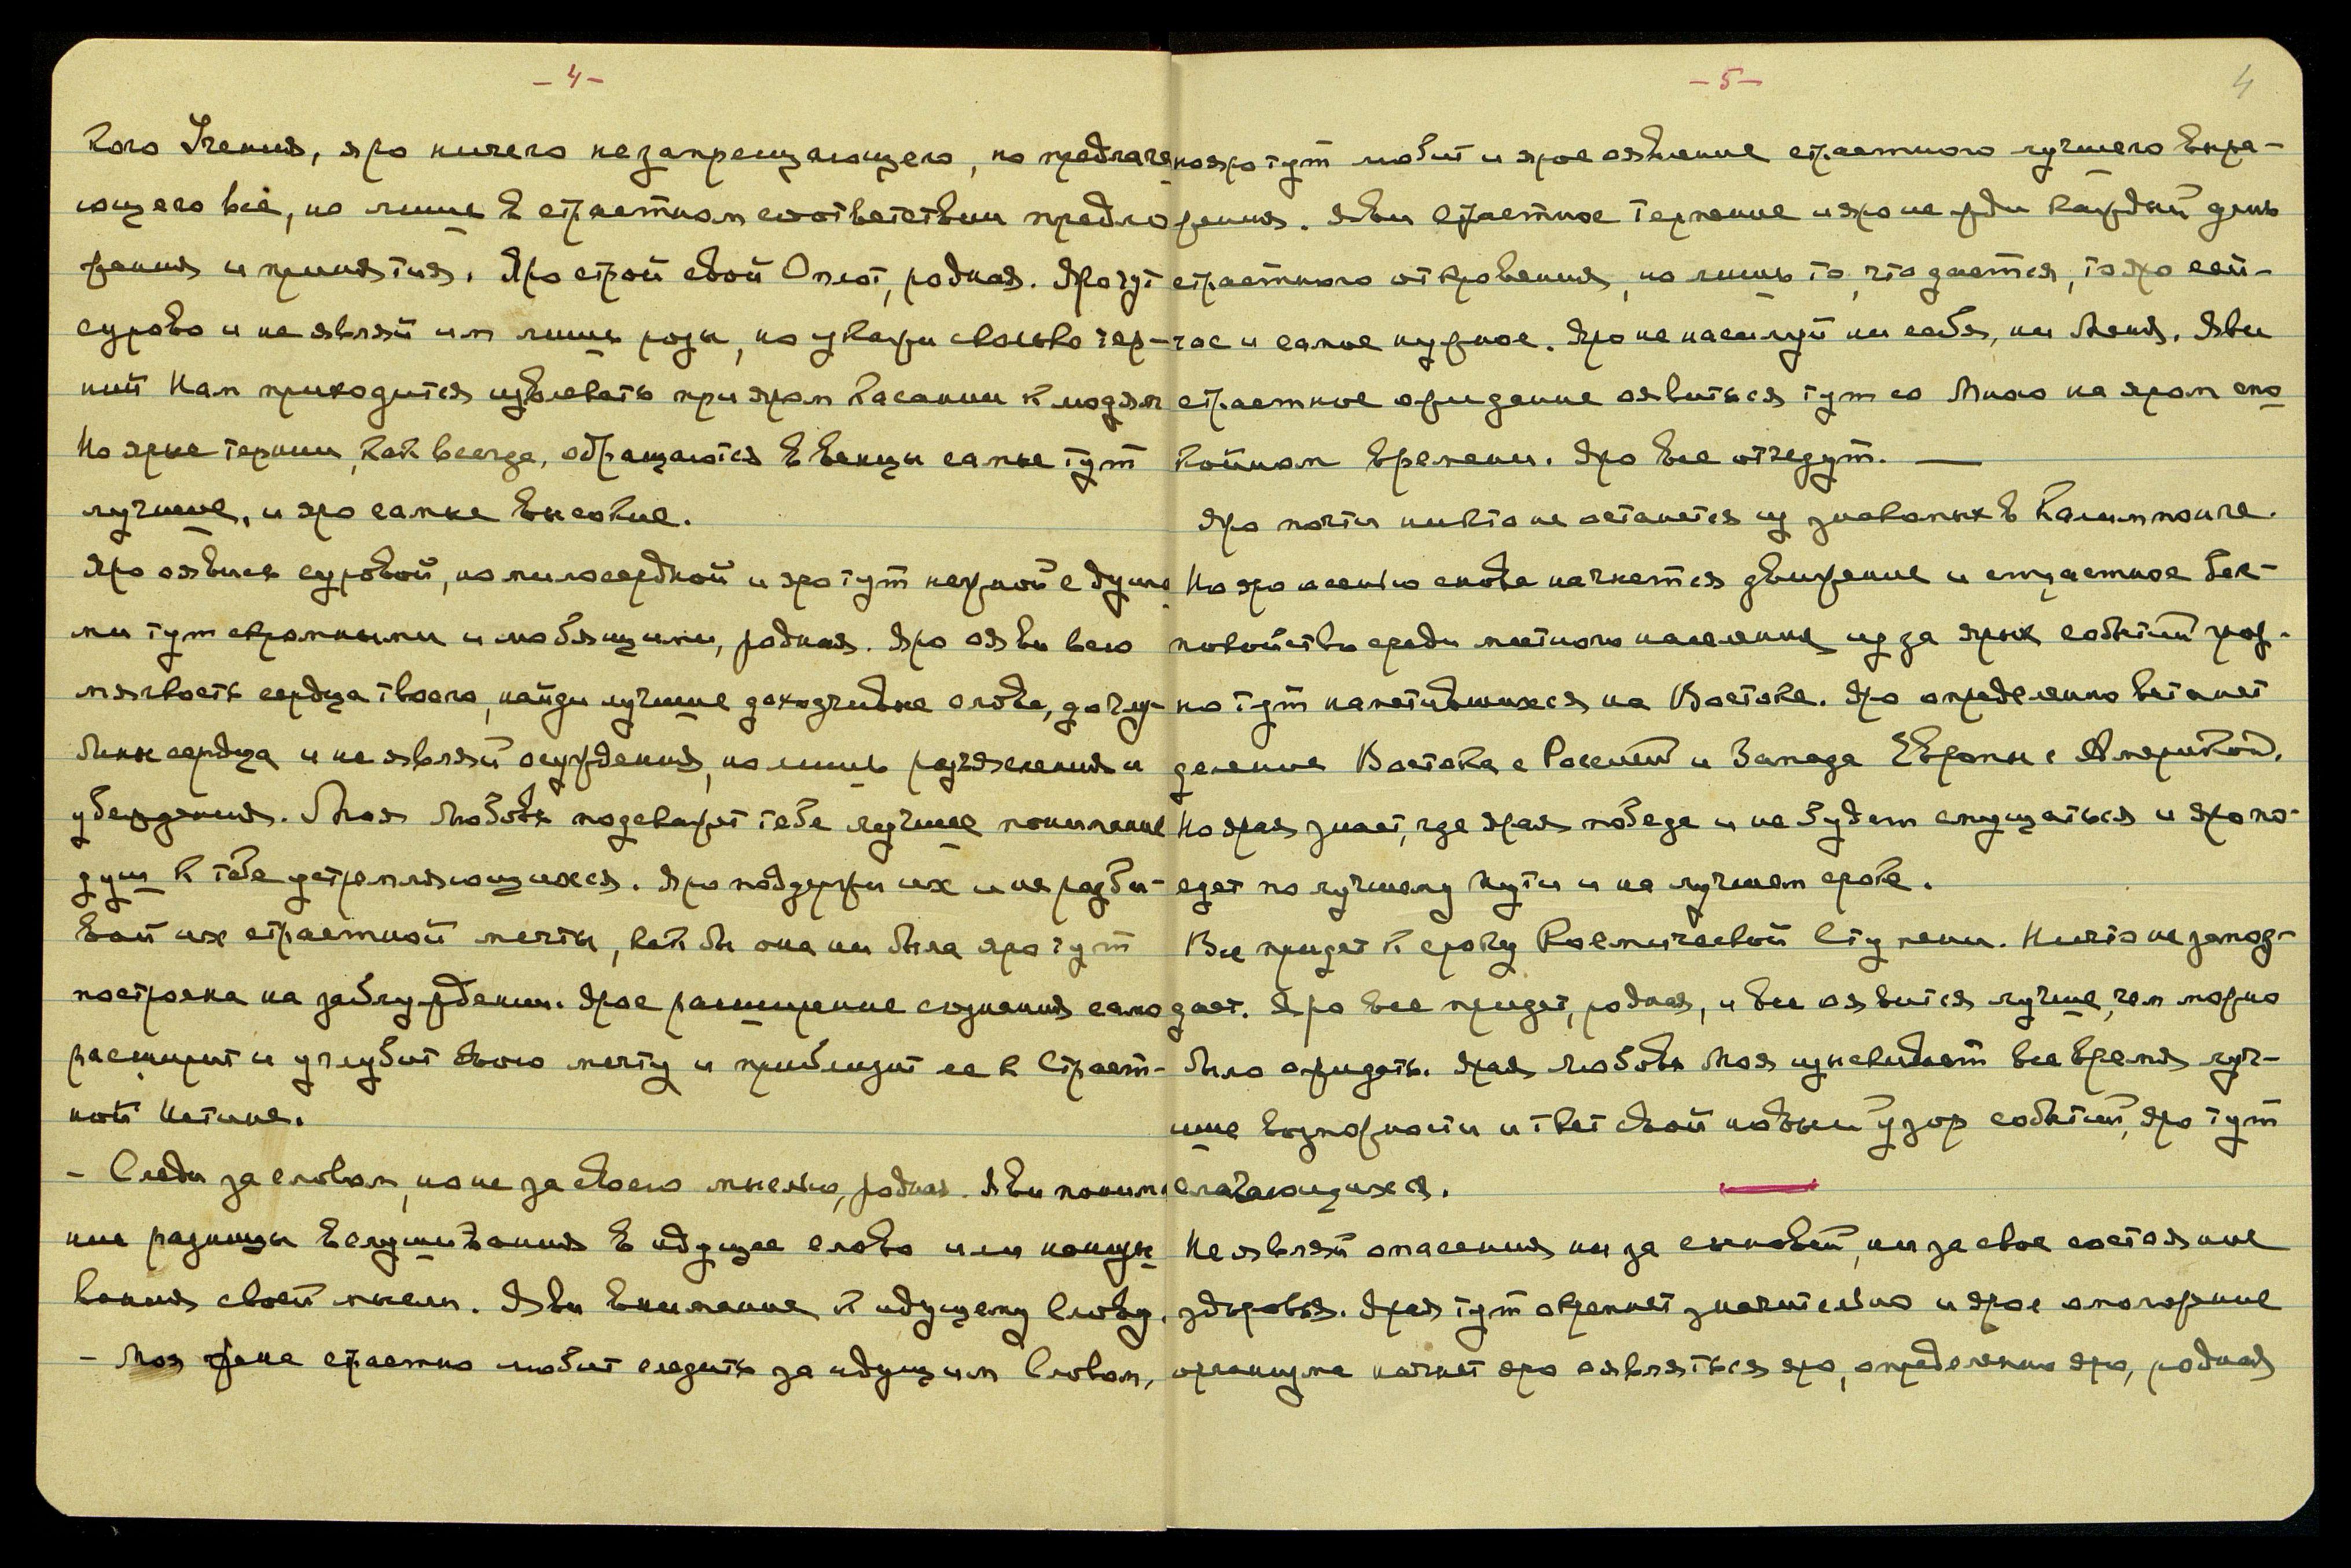 - 4 -
кого Учения, яро ничего не запрещающего, но предлага-
ющего всё, но лишь в страстном соответствии предло-
жения и принятия. Яро строй свой Оплот, родная. Яро тут
сурово и не являй им лишь розы, но укажи сколько тер-
ний Нам приходится изживать при яром касании к людям
Но ярые тернии, как всегда, обращаются в венцы самые тут
лучшие, и яро самые высокие.
Яро оявись суровой, но милосердной и яро тут нежной с душа-
ми тут скромными и любящими, родная. Яро ояви всю
мягкость сердца твоего, найди лучшие доходчивые слова, до глу-
бины сердца и не являй осуждения, но лишь разъяснения и
убеждения. Моя Любовь подскажет тебе лучшее понимание
душ к тебе устремляющихся. Яро поддержи их и не разби-
вай их страстной мечты, как бы она ни была яро тут
построена на заблуждении. Ярое расширение сознания само
расширит и углубит свою мечту и приблизит ее к Страст-
ной Истине.
- Следи за словом, но не за своею мыслью, родная. Яви понима-
ние разницы вслушивания в идущее слово или
вания своей мысли. Яви внимание к идущему Слову.
- Моя жена страстно любит следить за идущим Словом,
- 5 -
4
но яро тут любит и ярое оявление страстного лучшего выра-
жения. Яви страстное терпение и яро не жди каждый день
страстного откровения, но лишь то, что дается, то яро сей-
час и самое нужное. Яро не насилуй ни себя, ни Меня. Яви
страстное ожидание оявиться тут со Мною на яром спо-
койном времени. Яро все отъедут. —
Яро почти никто не останется из знакомых в Калимпонге.
Но яро осенью снова начнется движение и страстное бес-
покойство среди местного населения из за ярых событий гроз-
но тут наметившихся на Востоке. Яро определенно встанет
деление Востока с Россией и Запада Европы с Америкой.
Но ярая знает, где ярая победа и не будет смущаться и яро по-
едет по лучшему пути и на лучшем сроке.
Все придет к сроку Космической Ступени. Ничто не запоз-
дает. Яро все придет, родная, и все оявится лучше, чем можно
было ожидать. Ярая Любовь Моя изыскивает все время луч-
шие возможности и ткет свой новый узор событий, яро тут
слагающихся.
Не являй опасения ни за сыновей, ни за свое состояние
здоровья. Ярая тут окрепнет значительно и ярое омоложение
организма начнет яро оявляться яро, определенно яро, родная